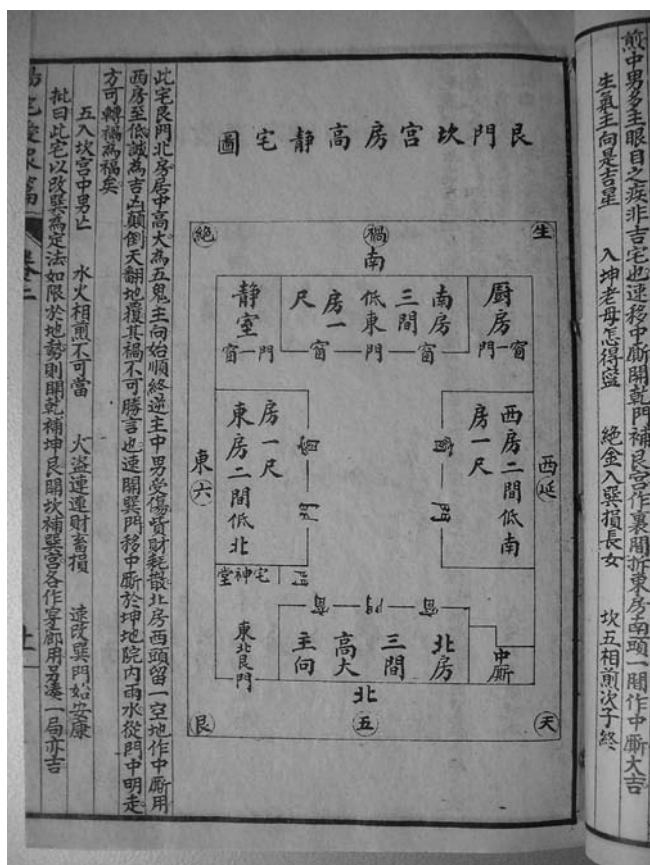 煎中男多主眼目之疾非吉宅也速移中廝開乾門補艮宮作裏間拆東房南頭一間作中廝大吉
生氣主向是吉星 入坤老母怎得寧 絕金入巽損長女 坎五相煎次子終
艮門坎宮房高靜宅圖
生
禍
絕
南
厨房
窗一門
南房
三間
低東
房一
尺
窗
門
窗
靜室
門一窗
西延
西房二間低南
房一尺
窗
門
東六
房一尺
東房二間低北
窗
門
宅神堂
門
窗
門
窗
中廝
北房
三間
高大
主向
東北艮門
北
天
五
艮
此宅艮門北房居中高大為五鬼主向始順終逆主中男受傷貲財耗散北房西頭留一空地作中廝用
西房至低誠為吉凶顛倒天翻地覆其禍不可勝言也速開巽門移中廝於坤地院內雨水從門中明走
方可轉禍為福矣
五入坎宮中男亡 水火相煎不可當 火盜連連財畜損 速改巽門始安康
批曰此宅以改巽為定法如限於地勢則開乾補坤艮開坎補巽宮各作穿廊用另湊一局亦吉